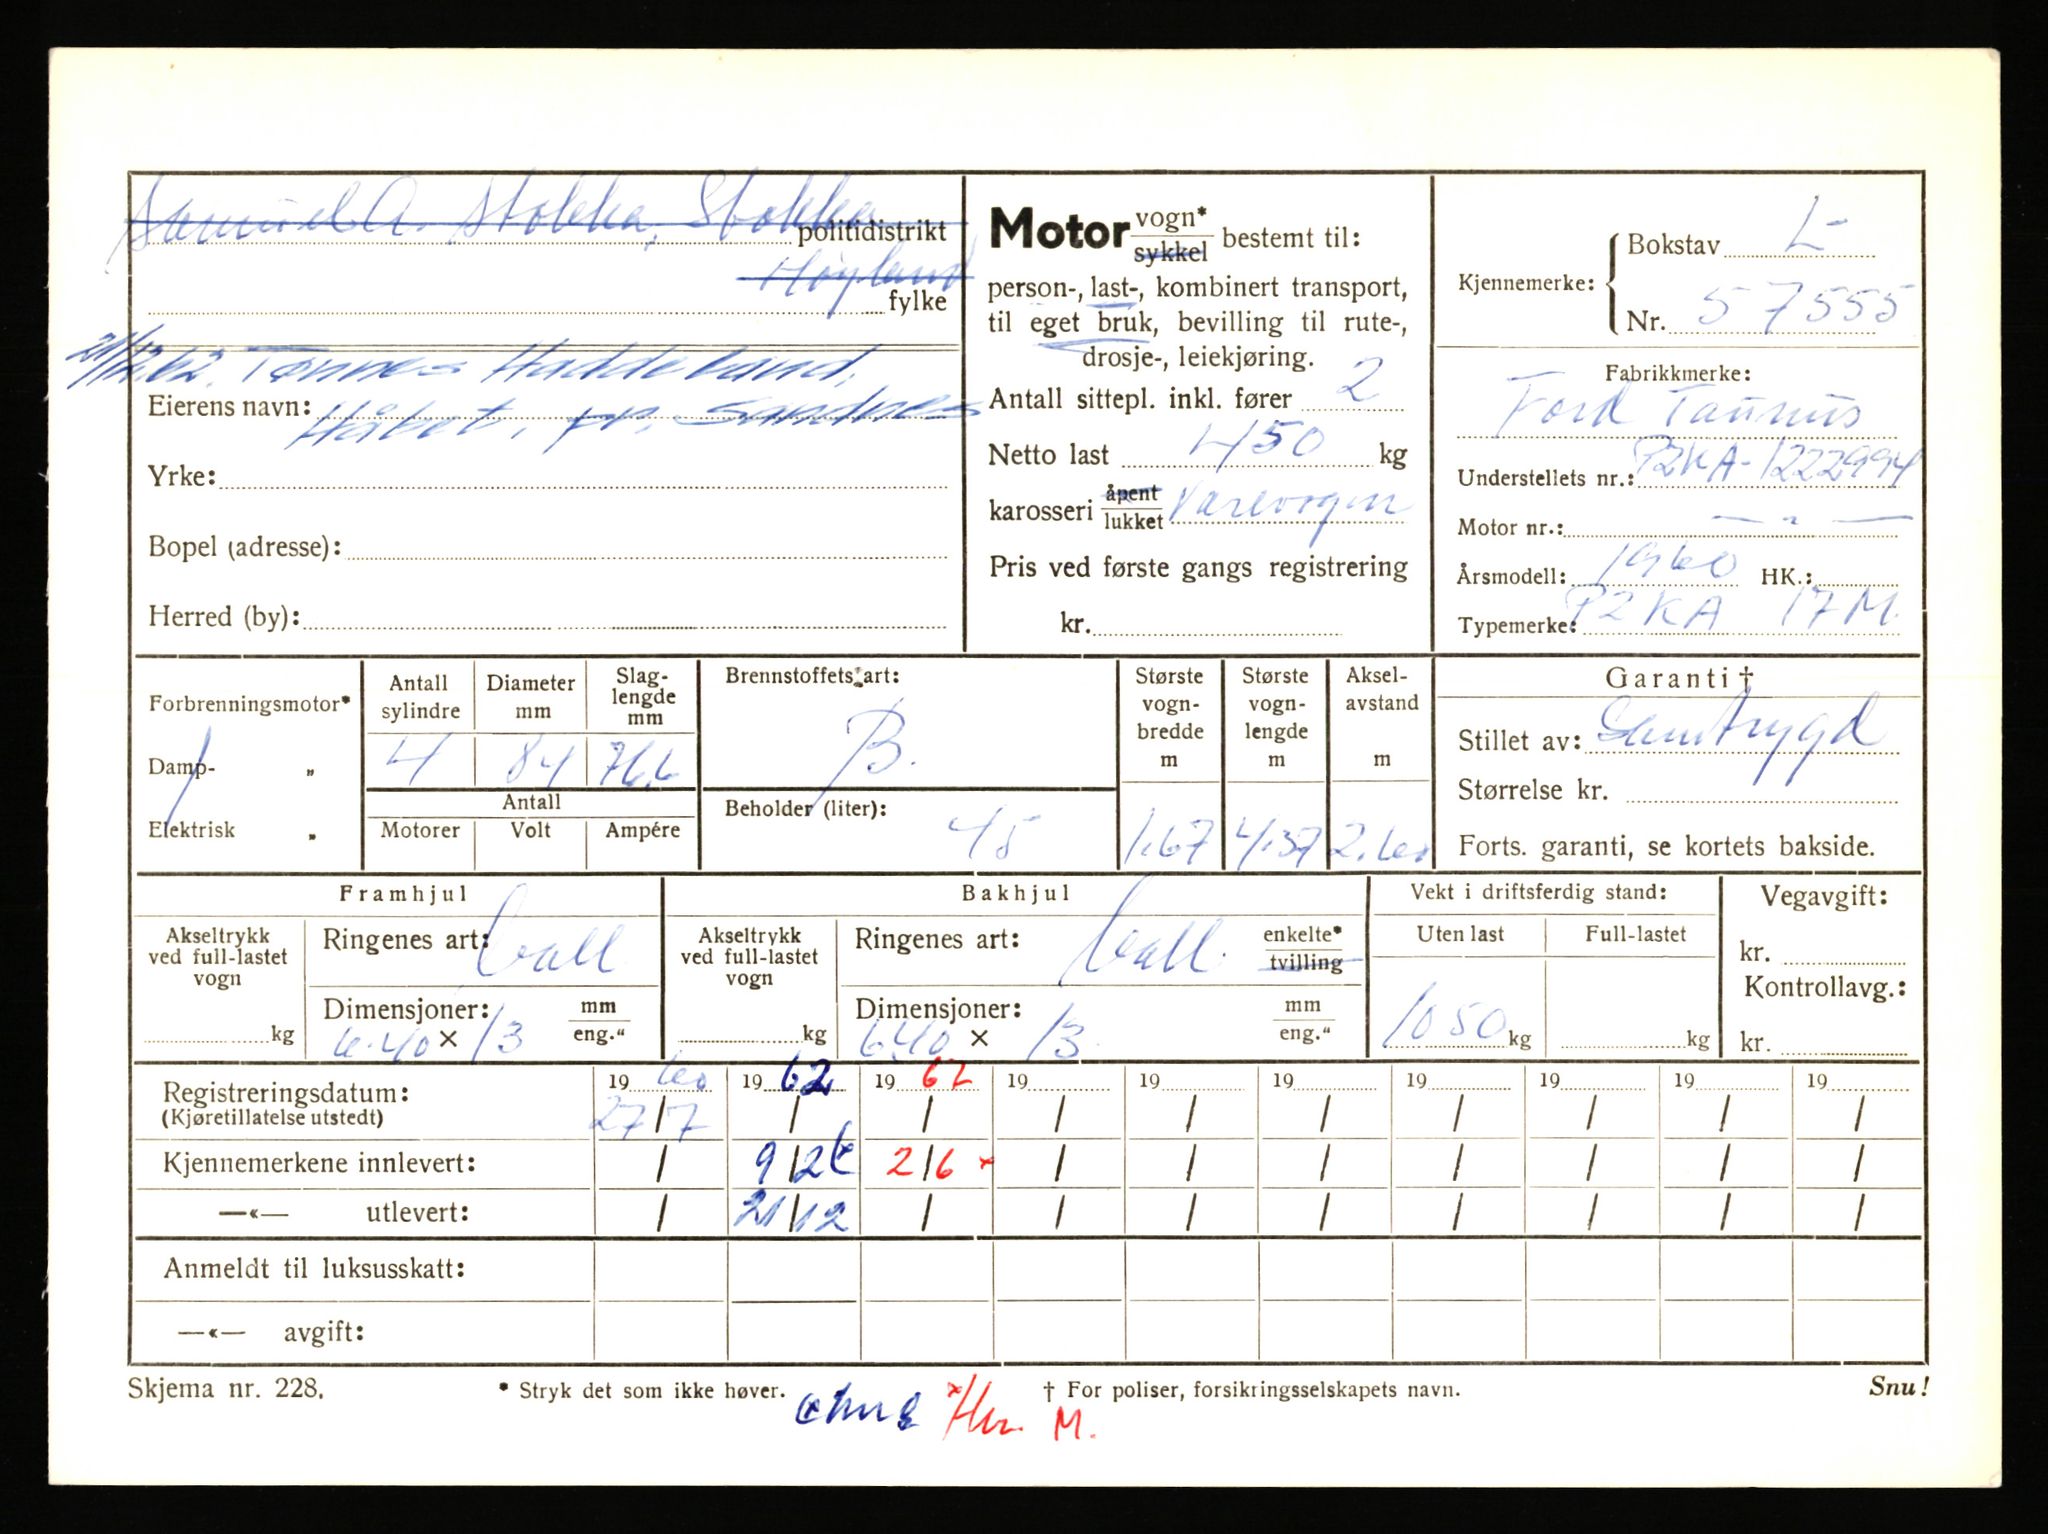 Samuel A. Stokka, Stokka
politidistrikt
Høyland
fylke
21/12.62. Tønnes Haddeland,
Eierens navn: Håbet, pr. Sandnes
Yrke:
Bopel (adresse):
Herred (by):
Motor vogn* / sykkel bestemt til:
person-, last-, kombinert transport,
til eget bruk, bevilling til rute-,
drosje-, leiekjøring.
Antall sittepl. inkl. fører 2
Netto last 450 kg
karosseri åpent / lukket Varevogn
Pris ved første gangs registrering
kr.
Kjennemerke: Bokstav L-
Nr. 57555
Fabrikkmerke:
Ford Taunus
Understellets nr.: P2KA-1222994
Motor nr.: — " —
Årsmodell: 1960 HK.:
Typemerke: P2KA 17M.
Forbrenningsmotor*
Damp- "
Elektrisk "
Antall sylindre 4
Diameter mm 84
Slag-lengde mm 76,6
Antall
Motorer Volt Ampére
Brennstoffets art:
B.
Beholder (liter): 45
Største vogn-bredde m 1.67
Største vogn-lengde m 4.37
Aksel-avstand m 2.60
Garanti †
Stillet av: Samtrygd
Størrelse kr.
Forts. garanti, se kortets bakside.
Framhjul
Akseltrykk ved full-lastet vogn kg
Ringenes art: ball
Dimensjoner: mm / eng."
6.40 × 13
Bakhjul
Akseltrykk ved full-lastet vogn kg
Ringenes art: ball. enkelte* / tvilling
Dimensjoner: mm / eng."
640 × 13
Vekt i driftsferdig stand:
Uten last Full-lastet
1050 kg kg
Vegavgift:
kr.
Kontrollavg.:
kr.
Registreringsdatum: 19 60 19 62 19 62 19 19 19 19 19 19 19
(Kjøretillatelse utstedt) 27/7 / / / / / / / / /
Kjennemerkene innlevert: / 9/2 x 2/6 x / / / / / / /
—«— utlevert: / 21/12 / / / / / / / /
Anmeldt til luksusskatt:
—«— avgift:
Skjema nr. 228.
* Stryk det som ikke høver.
† For poliser, forsikringsselskapets navn.
Snu!
M.